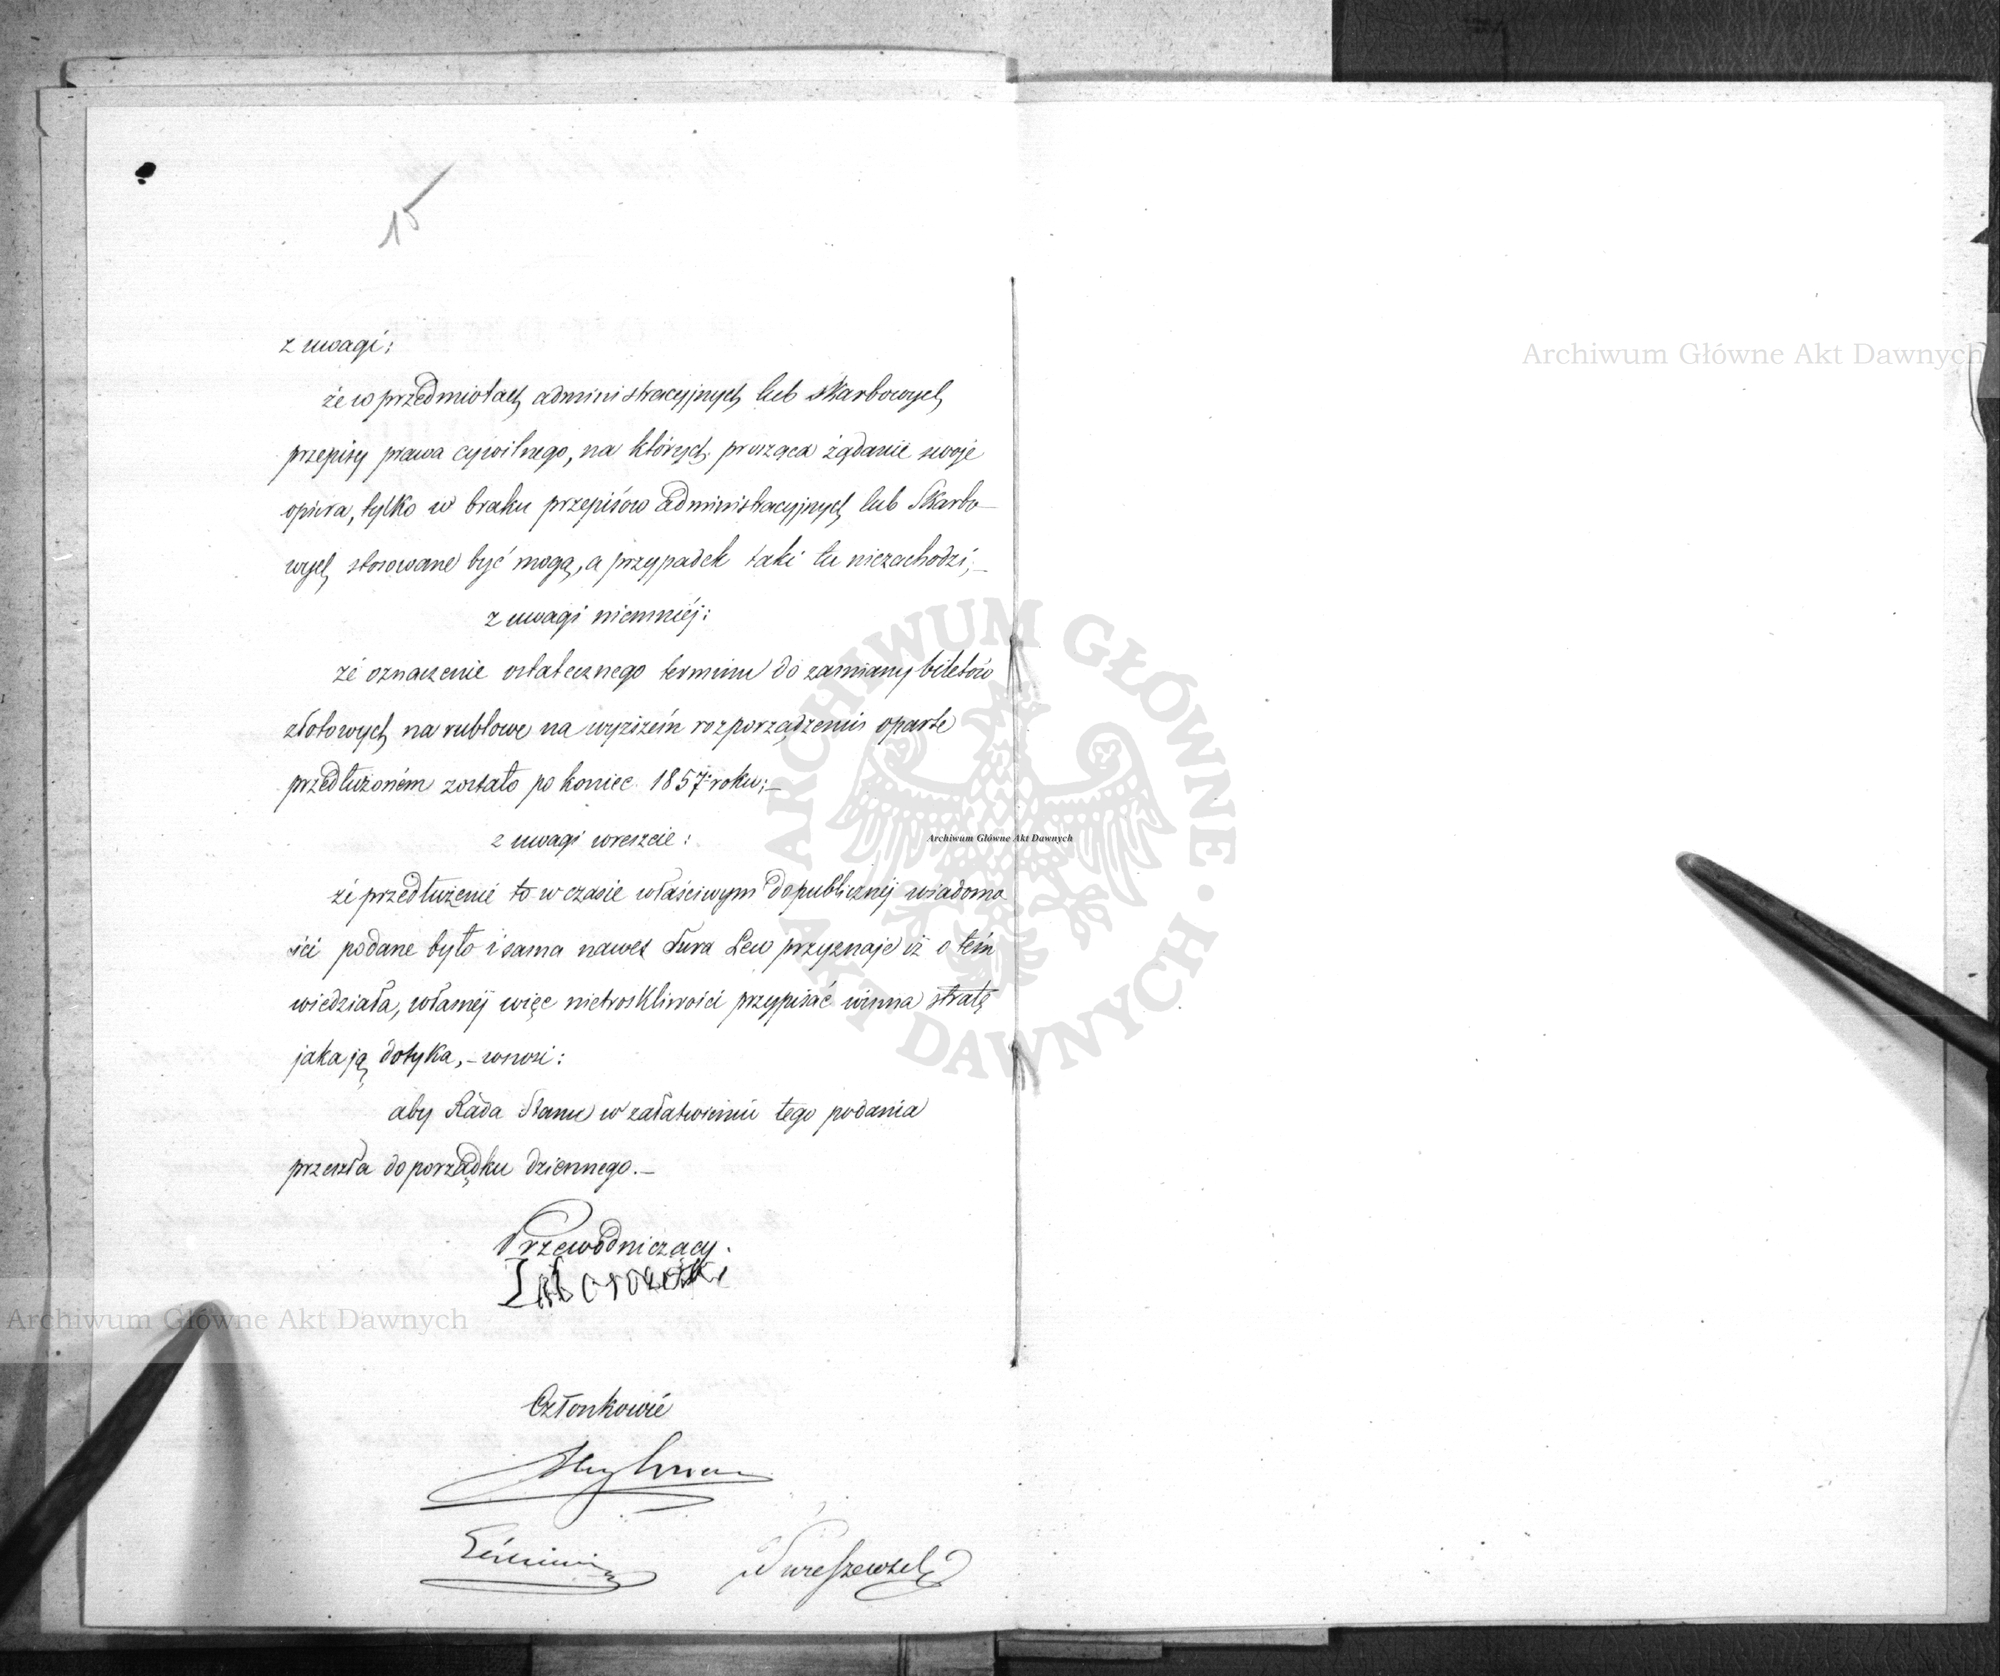 15
z uwagi:
że w przedmiotach administracyjnych lub skarbowych
przepisy prawa cywilnego, na których prosząca żądanie swoje
opiera, tylko w braku przepisów administracyjnych lub Skarbo-
wych stosowane być mogą, a przypadek taki tu niezachodzi;_
z uwagi niemniéj:
że oznaczenie ostatecznego terminu do zamiany biletów
złotowych na rublowe na wyższém rozporządzeniu oparte
przedłużoném zostało po koniec 1857 roku;_
z uwagi wreszcie:
że przedłużenie to w czasie właściwym do publicznéj wiadomo
ści podane było i sama nawet Sura Lew przyznaje iż o tém
wiedziała, własnéj więc nietroskliwości przypisać winna stratę
jaka ją dotyka, _ wnosi:
aby Rada Stanu w załatwieniu tego podania
przeszła do porządku dziennego._
Przewodniczący.
Członkowie
Archiwum Główne Akt Dawnych
Archiwum Główne Akt Dawnych
Archiwum Główne Akt Dawnych
ARCHIWUM GŁÓWNE AKT DAWNYCH